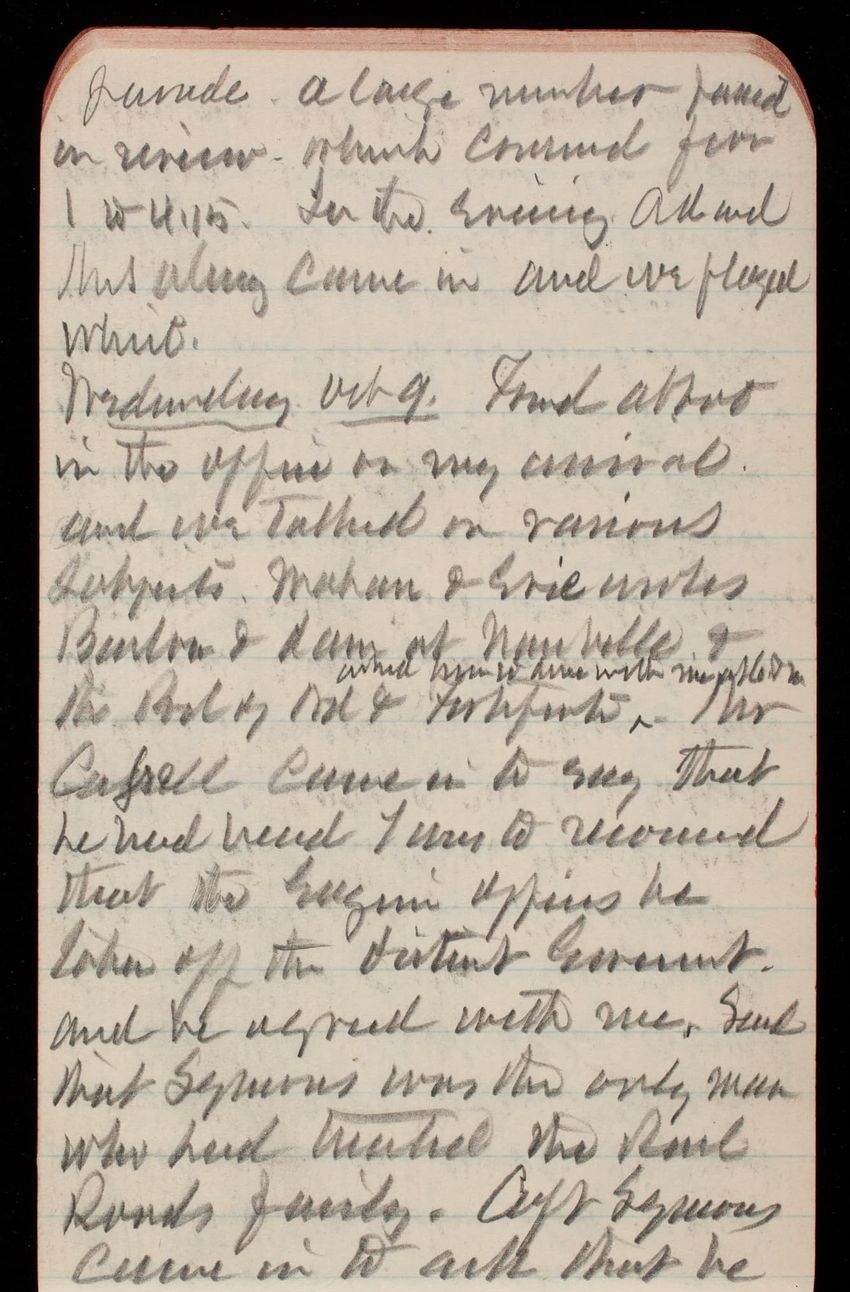 parade. A large number passed
in review. which consumed from
1 to 4.15. In the. Evening Ad and
Mrs along came in and we played
whist.
Wednesday Oct 9. Found Abbot
in the office on my arrival.
and we talked on various
Subjects. Mahan & Eric
Barlow & dam at &
asked him to dine with me
the Bod of Ord & Fortifications ^. Mr
Cassell came in to say that
he had heard I was to recommend
that the Engineer officers be
taken off the District Government.
and he agreed with me. Said
that Symons was the only man
who had treated the Rail
Roads fairly. Capt Symons
came in to ask that he